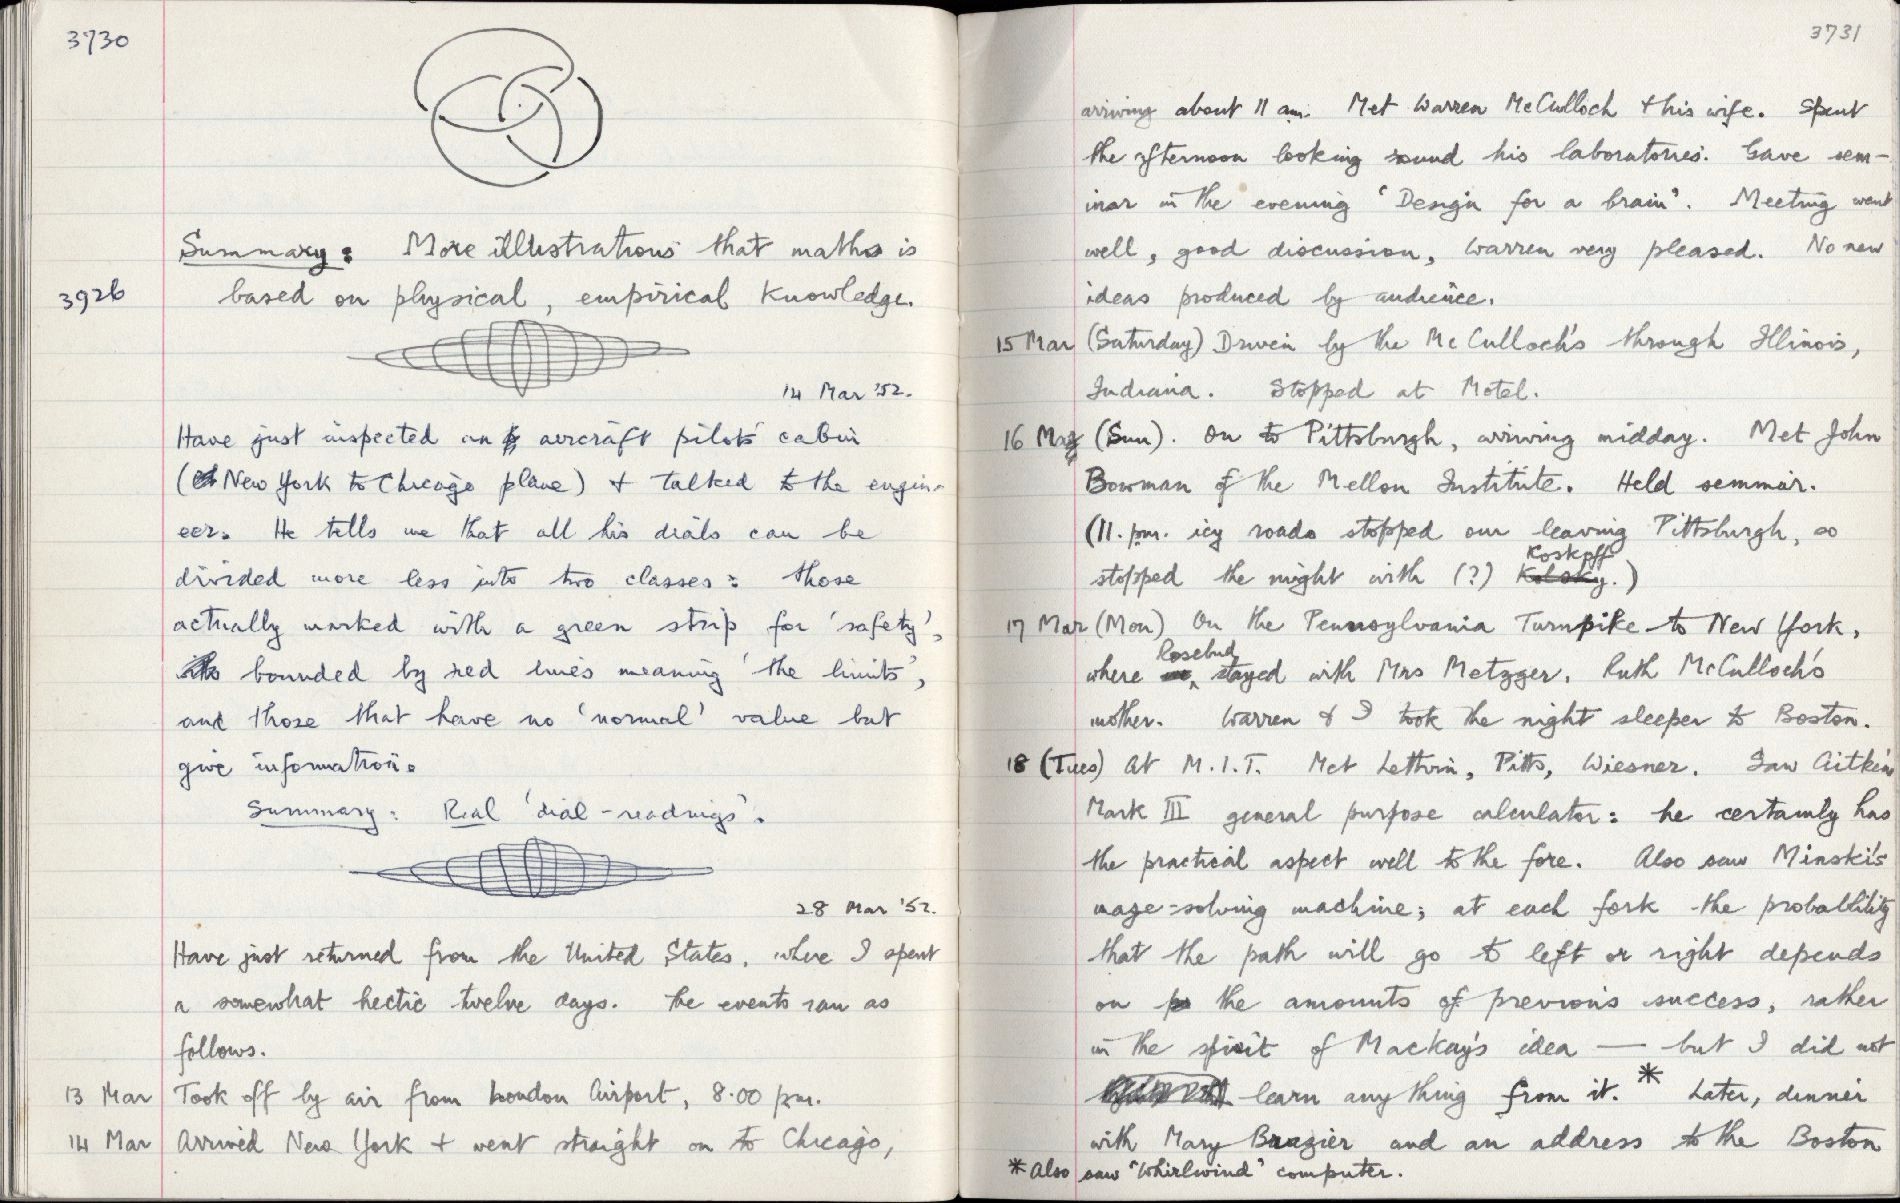 3730
Summary: More illustrations that maths is
3926 based on physical, empirical knowledge.
14 Mar '52.
Have just inspected an aircraft pilots' cabin
(New York to Chicago plane) & talked to the engin-
eer. He tells me that all his dials can be
divided more less into two classes: those
actually marked with a green strip for 'safety',
bounded by red lines meaning 'the limits',
and those that have no 'normal' value but
give information.
Summary: Real 'dial-readings'.
28 Mar '52.
Have just returned from the United States, where I spent
a somewhat hectic twelve days. The events ran as
follows.
13 Mar Took off by air from London Airport, 8.00 pm.
14 Mar Arrived New York & went straight on to Chicago,
3731
arriving about 11 am. Met Warren McCulloch & his wife. Spent
the afternoon looking round his laboratories. Gave sem-
inar in the evening 'Design for a brain'. Meeting went
well, good discussion, Warren very pleased. No new
ideas produced by audience.
15 Mar (Saturday) Driven by the McCulloch's through Illinois,
Indiana. Stopped at Motel.
16 Mar (Sun). On to Pittsburgh, arriving midday. Met John
Bowman of the Mellon Institute. Held seminar.
(11. pm. icy roads stopped our leaving Pittsburgh, so
Koskoff
stopped the night with (?) Kolsky.)
17 Mar (Mon) On the Pennsylvania Turnpike to New York,
Rosebud
where we stayed with Mrs Metzger, Ruth McCulloch's
mother. Warren & I took the night sleeper to Boston.
18 (Tues) At M.I.T. Met Lettvin, Pitts, Wiesner. Saw Aitken's
Mark III general purpose calculator: he certainly has
the practical aspect well to the fore. Also saw Minski's
maze-solving machine; at each fork the probability
that the path will go to left or right depends
on the amounts of previous success, rather
in the spirit of Mackay's idea — but I did not
learn anything from it.* Later, dinner
with Mary Brazier and an address to the Boston
* Also saw "Whirlwind" computer.